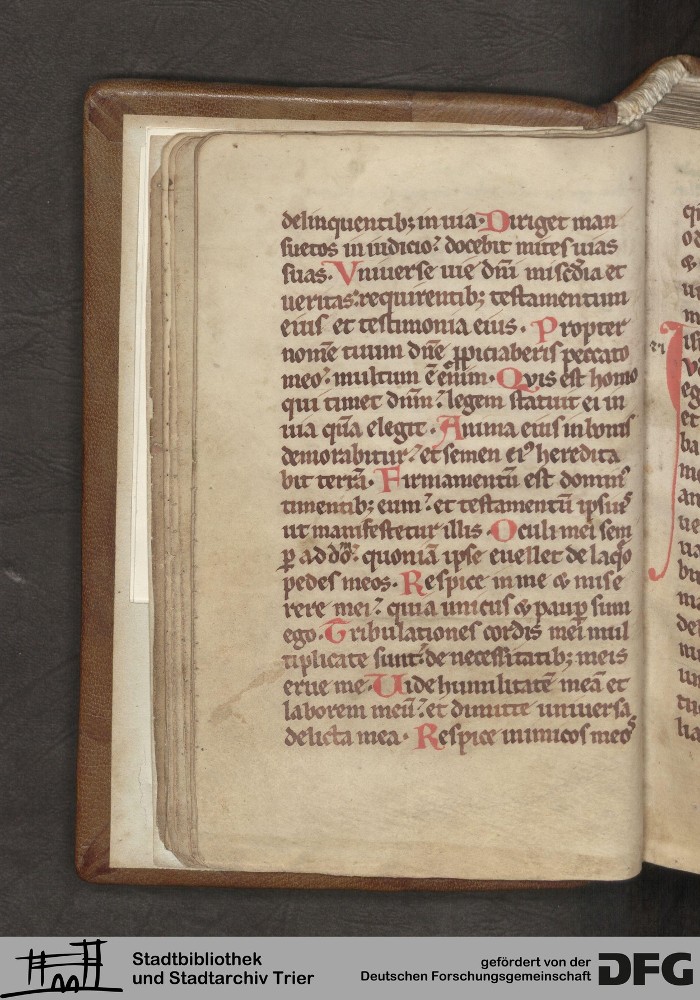 delinquentib; in uia. Diriget man
suetos in iudicio: docebit mites uias
suas. Vniuerse uie dñi misc̄dia et
ueritas: requirentib; testamentum
eius et testimonia eius. Propter
nom̄e tuum dn̄e ꝓpiciaberis peccato
meo: multum ē enim. Qvis est homo
qui timet dn̄m: legem statuit ei in
uia quā elegit. Anima eius in bonis
demorabitur: et semen ei᷒ heredita
bit terrā. Firmamentū est dominꝰ
timentib; eum: et testamentū ipsius
ut manifestetur illis. Oculi mei sem
ꝑ ad dōm: quoniā ipse euellet de laqo
pedes meos. Respice in me & mise
rere mei: quia unicus & paup̄ sum
ego. Tribulationes cordis mei mul
tiplicate sunt: de necessitatib; meis
erue me. Uide humilitatē meā et
laborem meū: et dimitte uniuersa
delicta mea. Respice inimicos meos
Stadtbibliothek
und Stadtarchiv Trier
gefördert von der
Deutschen Forschungsgemeinschaft
DFG